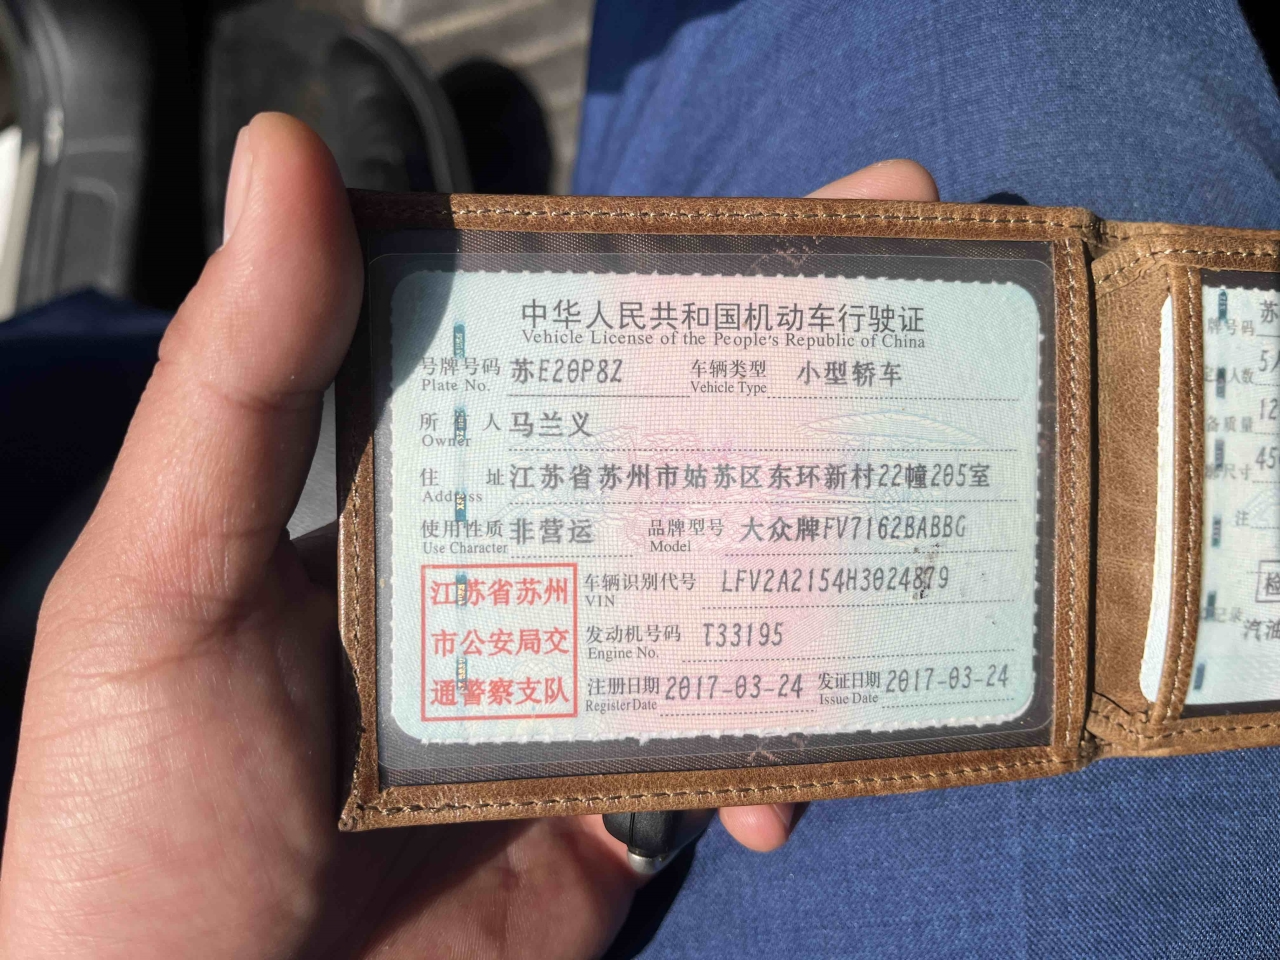 中华人民共和国机动车行驶证
Vehicle License of the People's Republic of China
号牌号码 苏E20P8Z 车辆类型 小型轿车
Plate No. Vehicle Type
所有人 马兰义
Owner
住址 江苏省苏州市姑苏区东环新村22幢205室
Address
使用性质 非营运 品牌型号 大众牌FV7162BABBG
Use Character Model
车辆识别代号 LFV2A2154H3024879
VIN
发动机号码 T33195
Engine No.
注册日期 2017-03-24 发证日期 2017-03-24
Register Date Issue Date
江苏省苏州
市公安局交
通警察支队
牌号码 苏
人数 5
备质量 12
尺寸 45
注
检
记录 汽油